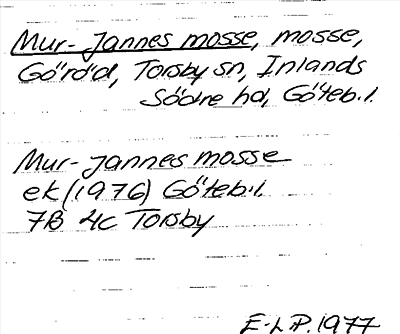 Mur-Jannes mosse, mosse,
Göröd, Torsby sn, Inlands
Södre hd, Göteb.l.
Mur-Jannes mosse
ek (1976) Göteb.l.
7B 4c Torsby
E-L P. 1977